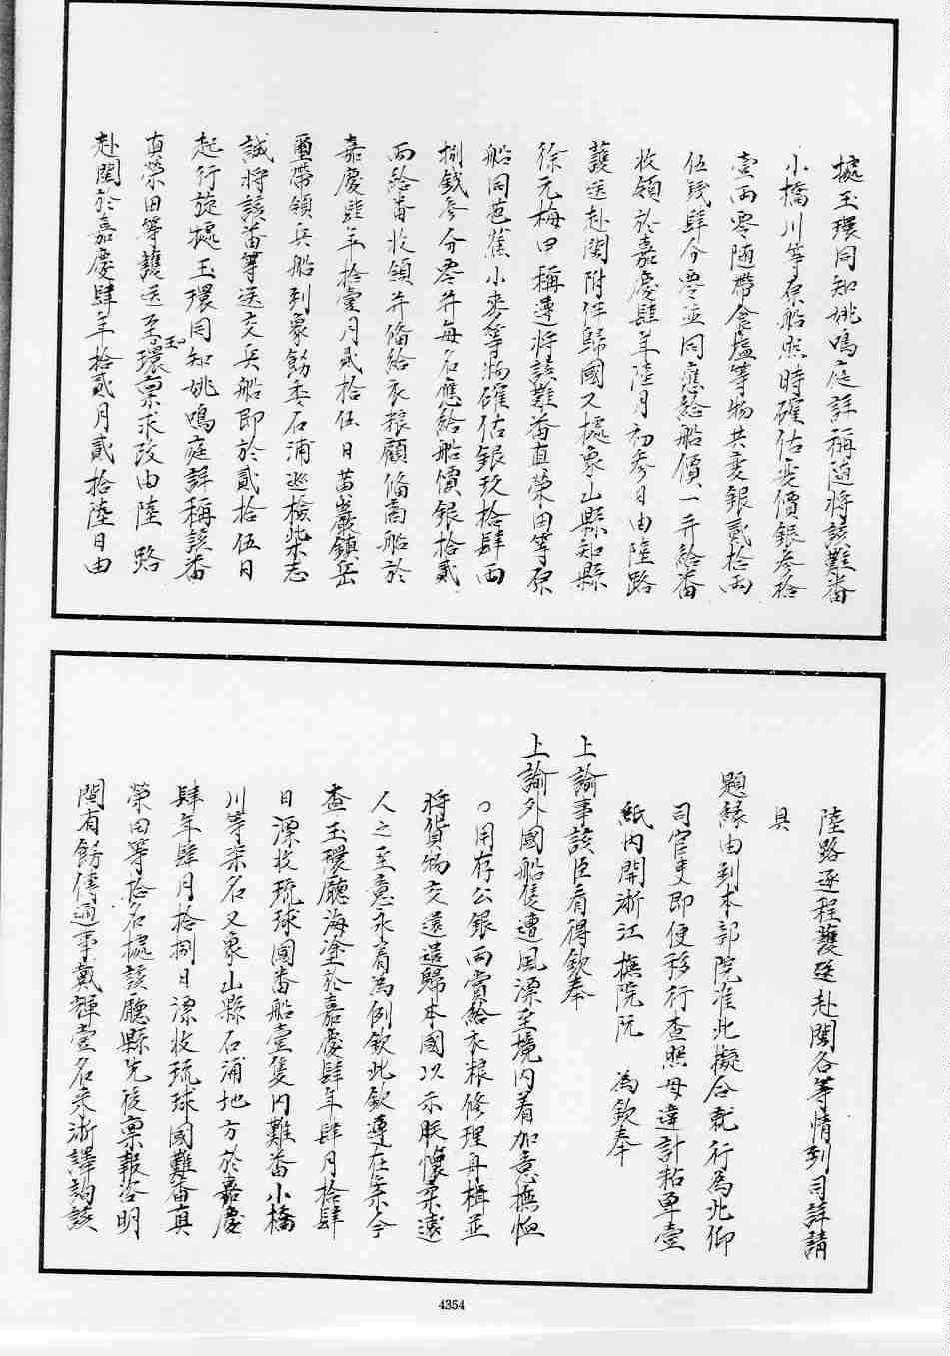 據玉環同知姚鳴庭詳稱隨將該難番
小橋川等原船照時確估変價銀參拾
壹両零隨帶食塩等物共変銀貳拾両
伍錢肆分零並同應給船價一并給番
收領於嘉慶肆年陸月初參日由陸路
護送赴閩附伴歸國又據象山縣知縣
徐元梅申稱遵將該難番真榮田等原
船同芭蕉小麥等物確估銀玖拾肆両
捌錢參分零并每名應給船價銀拾貳
両給番收領并俻給衣粮顧俻商船於
嘉慶肆年拾壹月貳拾伍日黃巖鎮岳
璽帶領兵船到象飭委石浦巡檢柴志
誠將該番等送交兵船即於貳拾伍日
起行旋據玉環同知姚鳴庭詳稱該番
真榮田等護送至玉環稟求改由陸路
赴閩於嘉慶肆年拾貳月貳拾陸日由
陸路逐程護送赴閩各等情到司詳請
具
題緣由到本部院准此擬合就行為此仰
司官吏即便移行查照毋違計粘單壹
紙內開浙江撫院阮 為欽奉
上諭事該臣看得欽奉
上諭外國船隻遭風漂至境內着加意撫恤
○用存公銀両賞給衣粮修理舟楫並
將貨物交還遣歸本國以示朕懷柔遠
人之至意永着為例欽此欽遵在案今
查玉環廳海塗於嘉慶肆年肆月拾肆
日漂收琉球國番船壹隻內難番小橋
川等柒名又象山縣石浦地方於嘉慶
肆年肆月拾捌日漂收琉球國難番真
榮田等拾名據該廳縣先後稟報咨明
閩有飭傳通事戴輝壹名来浙譯詢該
4354